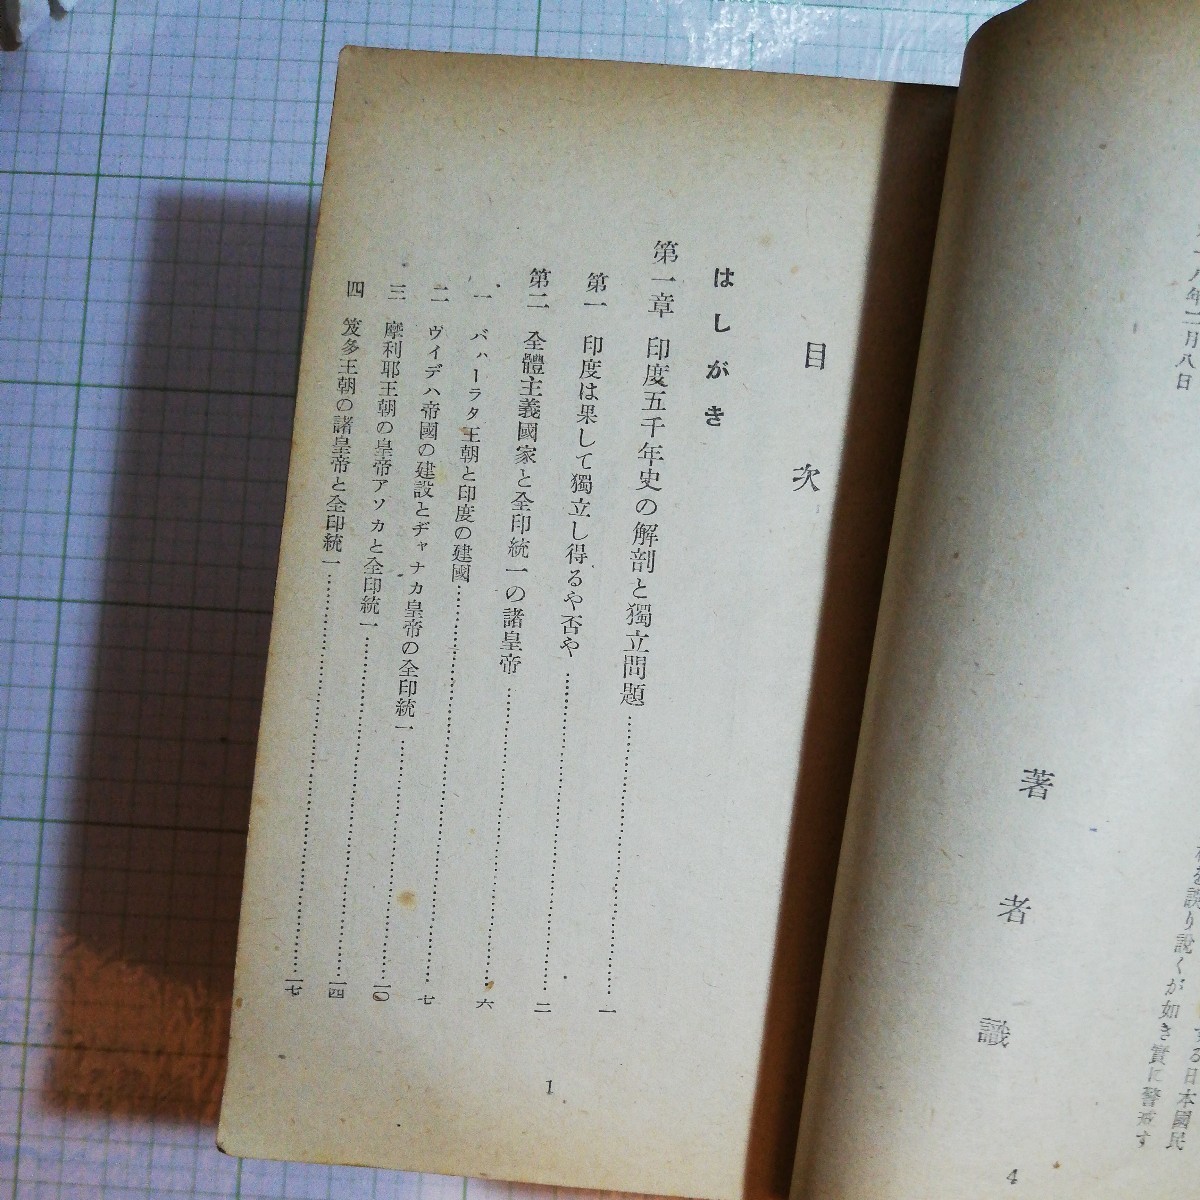 八年二月八日
著者識
誤り說くが如き實に警戒す
する日本國民
4
目次
はしがき
第一章 印度五千年史の解剖と獨立問題……一
第一 印度は果して獨立し得るや否や……二
第二 全體主義國家と全印統一の諸皇帝……六
一 バハーラタ王朝と印度の建國……七
二 ヴイデハ帝國の建設とヂャナカ皇帝の全印統一……一〇
三 摩利耶王朝の皇帝アソカと全印統一……一四
四 笈多王朝の諸皇帝と全印統一……一七
1